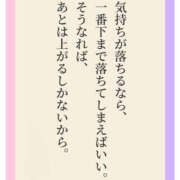 気持ちが落ちるなら、
一番下まで落ちてしまえばいい。
そうなれば、
あとは上がるしかないから。